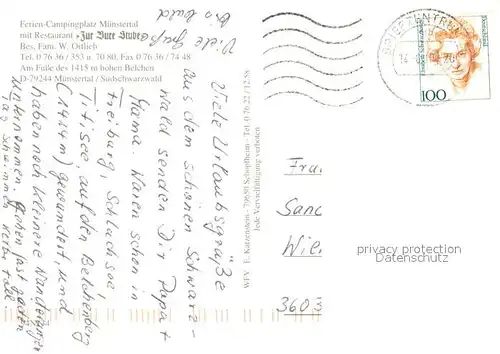 Ferien-Campingplatz Münstertal
mit Restaurant »Zur Bure Stube«
Bes. Fam. W. Ortlieb
Tel. 0 76 36 / 353 u. 70 80, Fax 0 76 36 / 74 48
Am Fuße des 1415 m hohen Belchen
D-79244 Münstertal / Südschwarzwald
Viele Grüße
bis bald
Viele Urlaubsgrüße
aus dem schönen Schwarz-
wald senden Dir Papa +
Mama. Waren schon in
Freiburg, Schluchsee,
Titisee, auf den Belchenberg
(1414m) gewandert, und
haben noch kleinere Wanderungen
unternommen. Gehen fast jeden
Tag schwimmen.
WFV E. Katzenstein - 79650 Schopfheim - Tel. 0 76 22 / 12 58
Jede Vervielfältigung verboten
BRIEFZENTRUM
100
Fra.
Sanc
Wie.
3603
privacy protection
Datenschutz